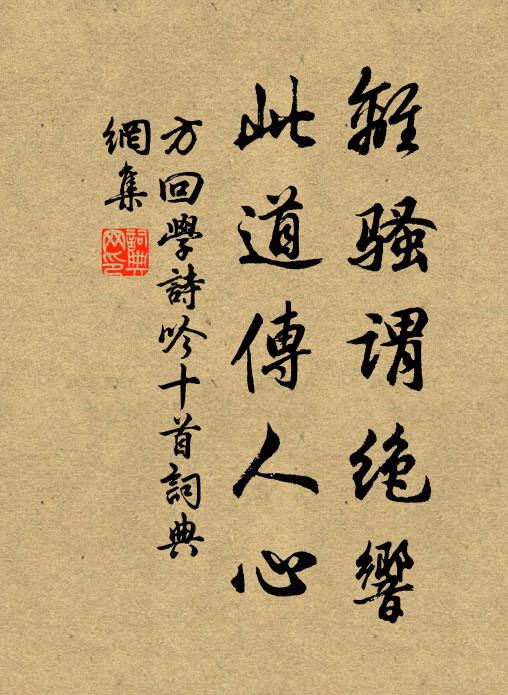 離騷謂絶響
此道傳人心
方回學詩吟十首詞典
網集
詞典網印